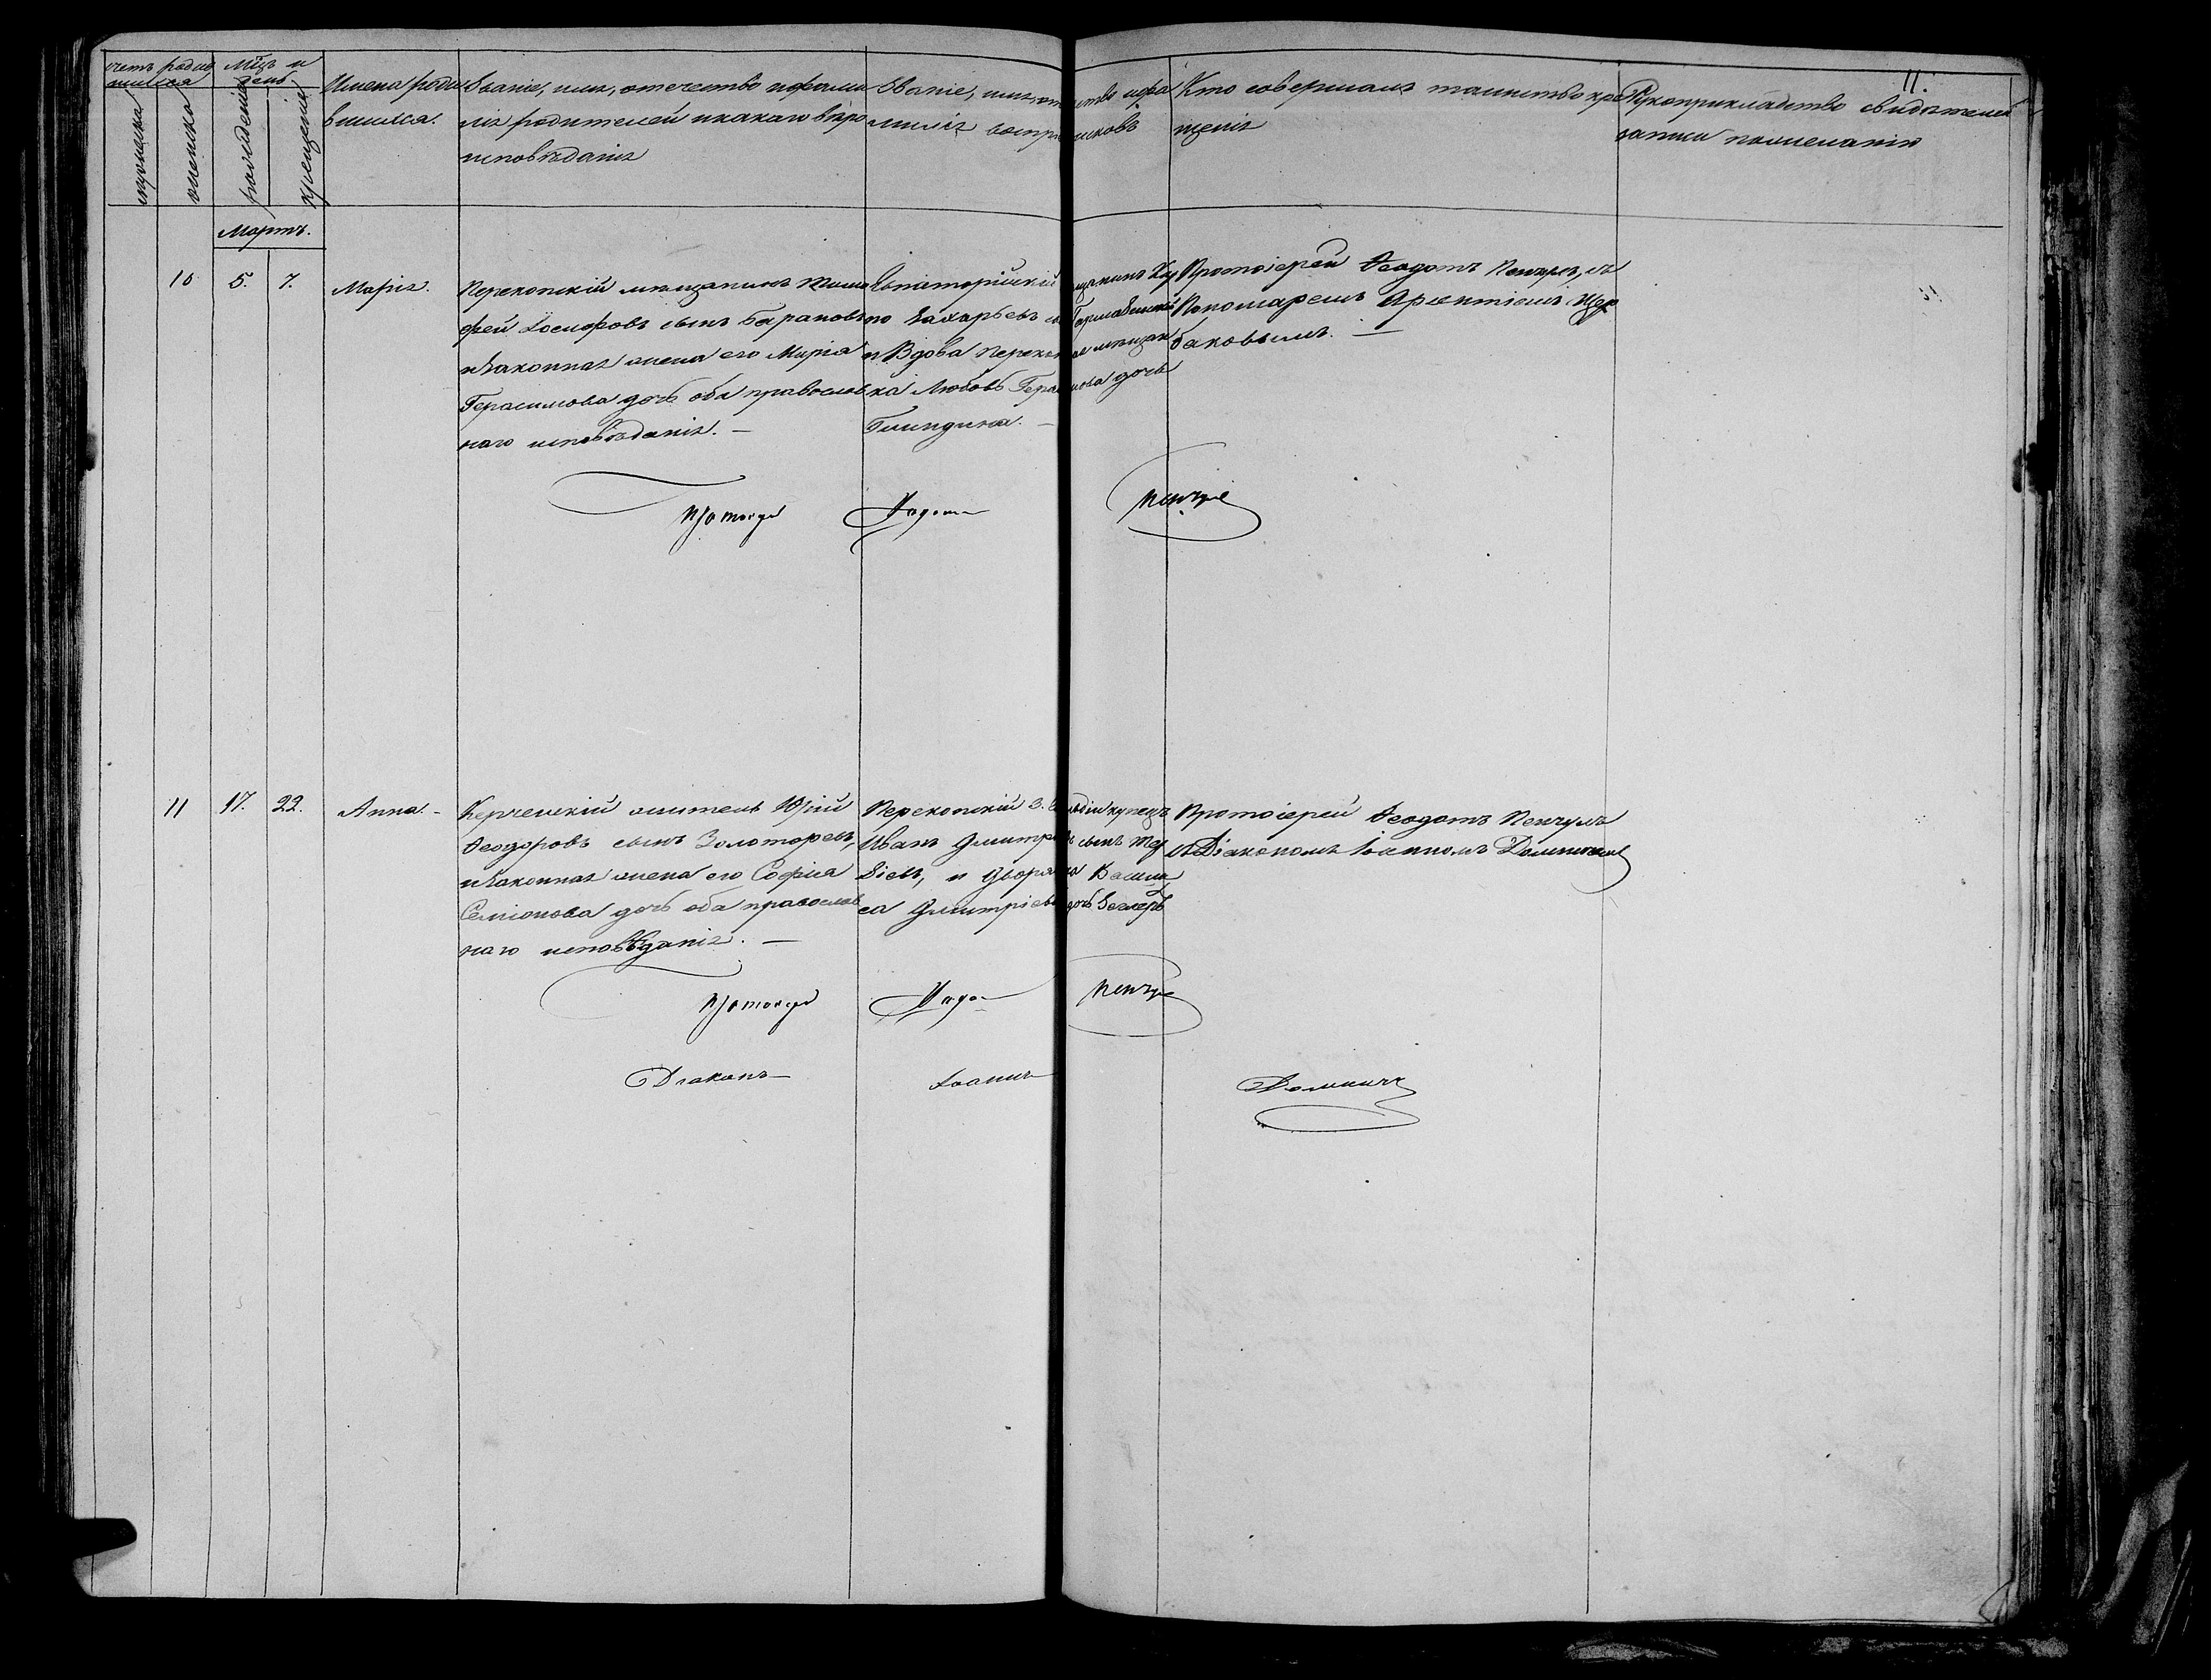 11.
Счетъ родив
шихся
Мцъ и
день
мужеска
женска
рожденія
крещенія
Имена роди
вшихся.
Званіе, имя, отечество и фами
лія родителей и какого вѣро
исповѣданія
Званіе, имя, отчество и фа
милія воспріемниковъ
Кто совершалъ таинство кре
щенія
Рукоприкладство свидѣтелей
записи по желанію
Мартъ.
10
5.
7.
Марія.
Перекопскій мѣщанинъ Тимо
фей Іосифовъ сынъ Барановъ
и законная жена его Марія
Герасимова дочь оба православ
наго исповѣданія. —
Евпаторійскій мѣщанинъ
по Захарьевъ
и Вдова Перекопская мѣщан
ка Любовь Герасимова дочь
Протоіерей Ѳеодотъ Пенчулъ, съ
Пономаремъ Арсентіемъ Щер
баковымъ. —
Протоіерей Ѳеодотъ Пенчулъ
11
17.
22.
Анна. -
Керченскій житель Юрій
Ѳеодоровъ сынъ Золоторевъ,
и законная жена его Софиа
Семіонова дочь оба православ
наго исповѣданія. —
Перекопскій 3. гильдіи купецъ
Иванъ Дмитріевъ сынъ
и Дворянка
Дмитріева дочь
Протоіерей Ѳеодотъ Пенчулъ
съ Діакономъ Іоанномъ
Протоіерей Ѳеодотъ Пенчулъ
Діаконъ Іоаннъ